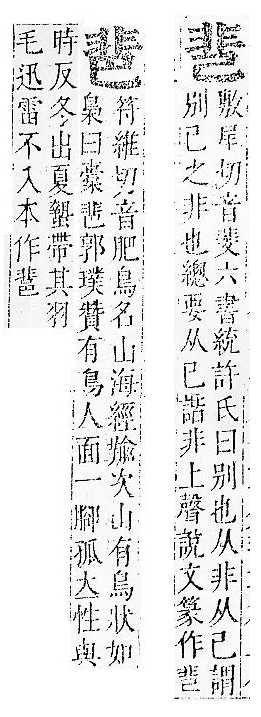 敷尾切音斐六書統許氏曰別也从非从己謂
別已之非也總要从己諧非上聲說文篆作
符維切音肥鳥名山海經羭次山有鳥狀如
梟曰橐𩇯郭璞贊有鳥人面一腳孤犬性與
時反冬出夏蟄帶其羽
毛迅雷不入本作